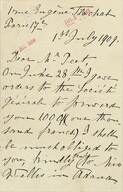 Rue Eugène Flachat
Paris 17e
1st July 1909.
Dear Mr Peet
On June 28th I gave
orders to the Société
Générale to forward
you 1000 (one thou
sand francs) I shall
be much obliged to
you kindly to
in Advance